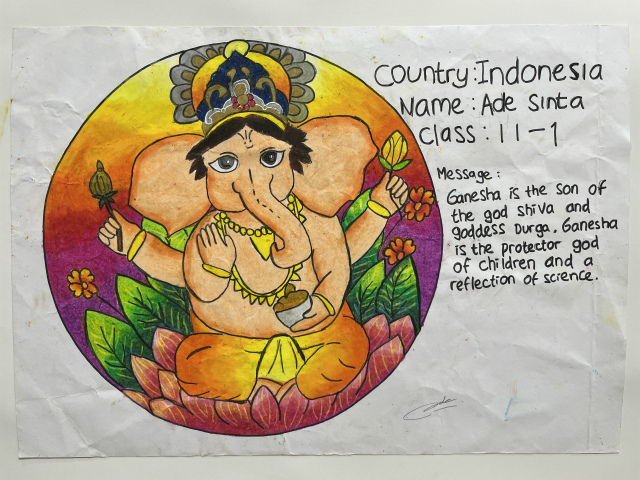 Country:Indonesia
Name : Ade Sinta
Class : 11-1
Message :
Ganesha is the son of
the god Shiva and
goddess Durga. Ganesha
is the protector god
of children and a
reflection of science.